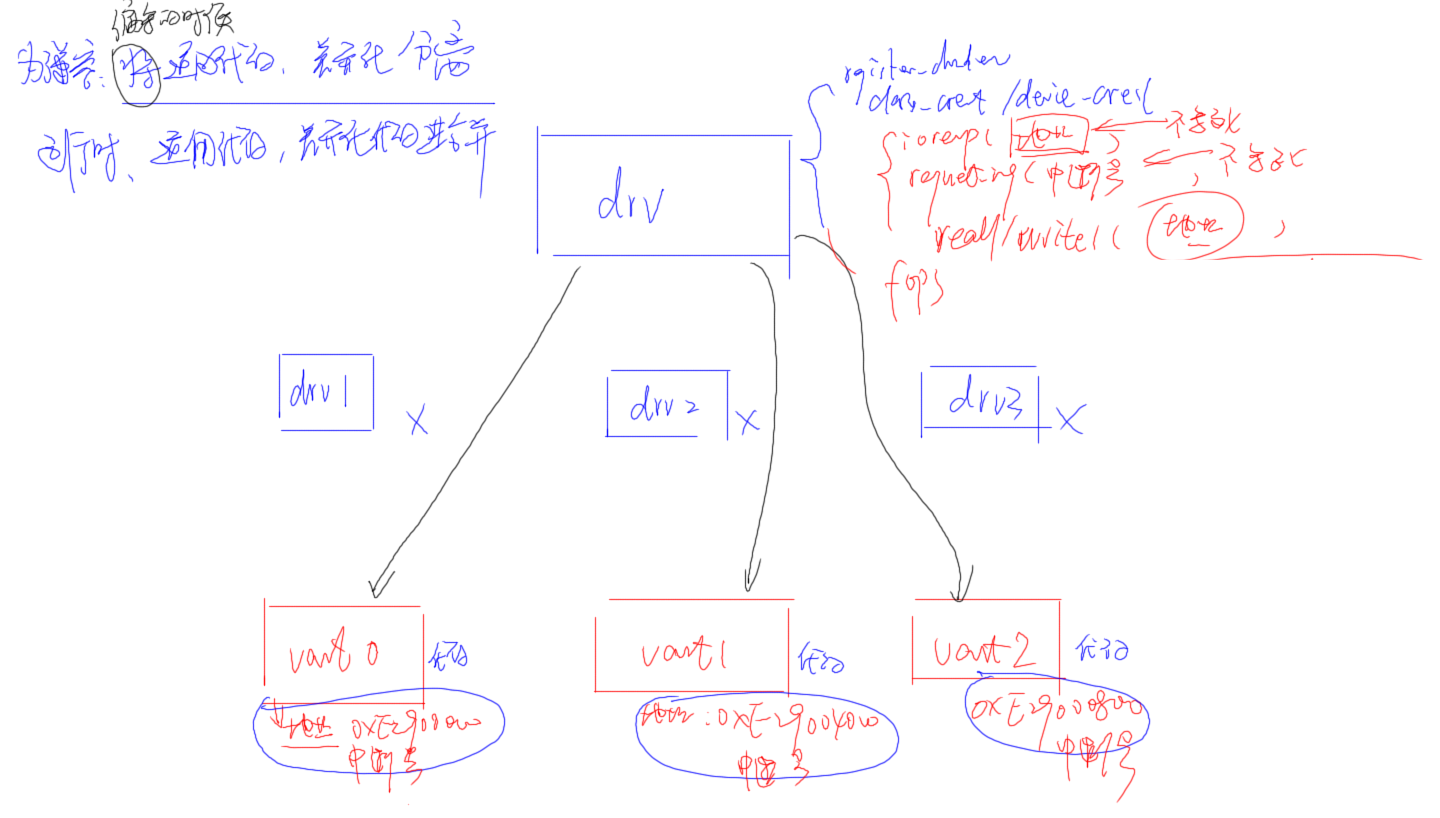 编写的时候
为兼容: 将通用代码、差异化分离
运行时、通用代码, 差异化代码进行合并
drv
register_chrdev
class_creat /device_creat
ioremap( 地址 ) 不写死
request_irq( 中断号 , 不写死
readl/writel( 地址 )
fops
drv1 X
drv2 X
drv3 X
uart 0 代码
地址 0xE2900000
中断号
uart1 代码
地址: 0xE2900400
中断号
uart2 代码
0xE2900800
中断号